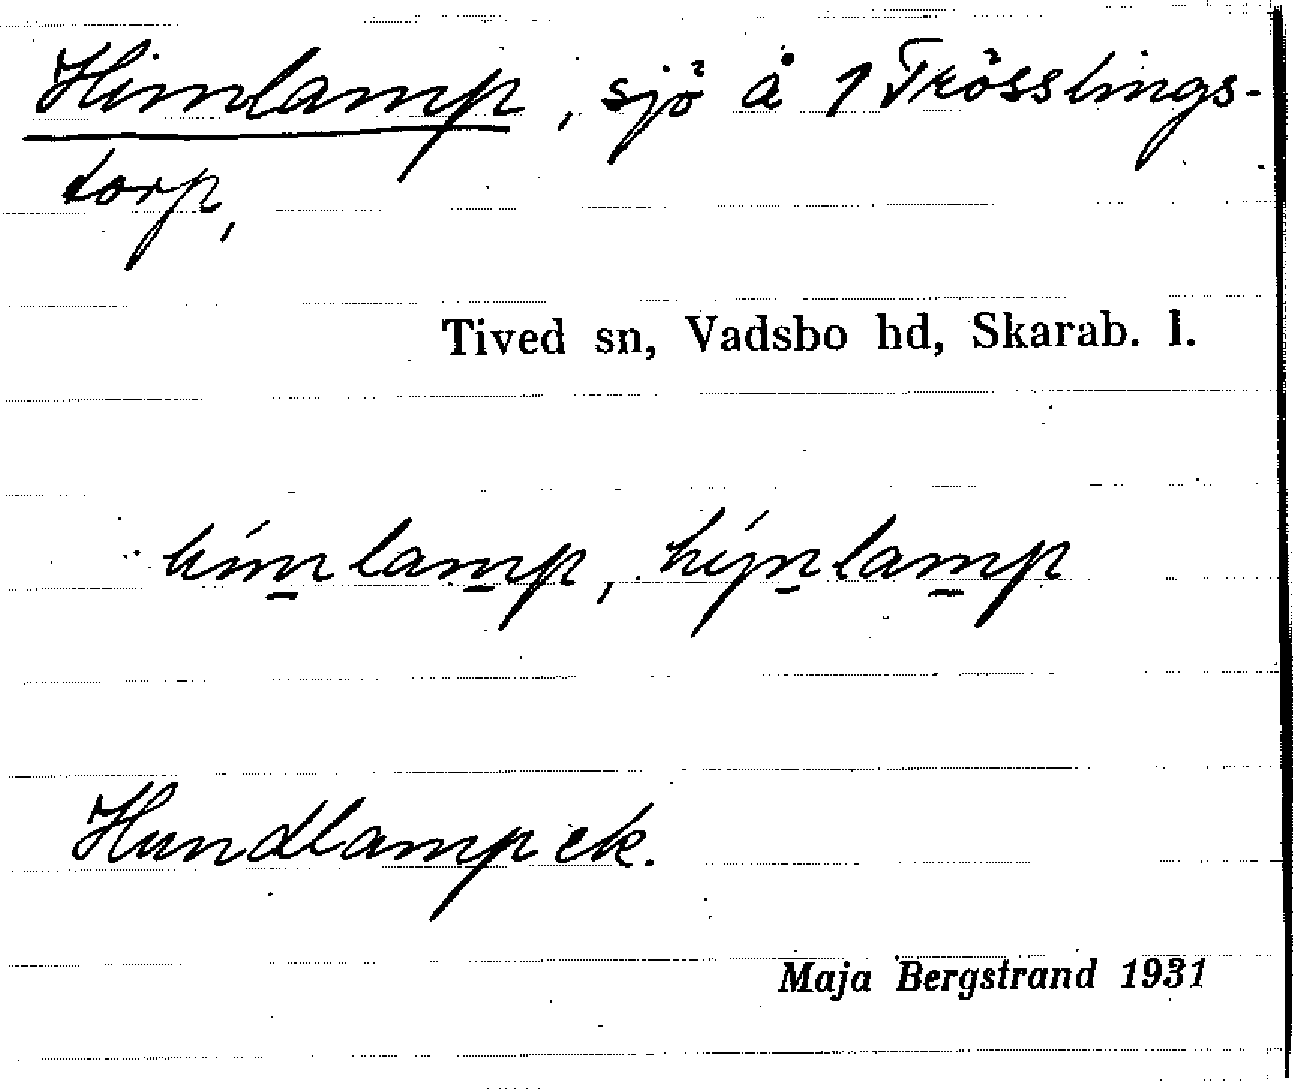 Himlamp, sjö å 1 Trösslings-
torp,
Tived sn, Vadsbo hd, Skarab. l.
hím̲lam̲p, hýn̲lam̲p
Hundlamp ek.
Maja Bergstrand 1931